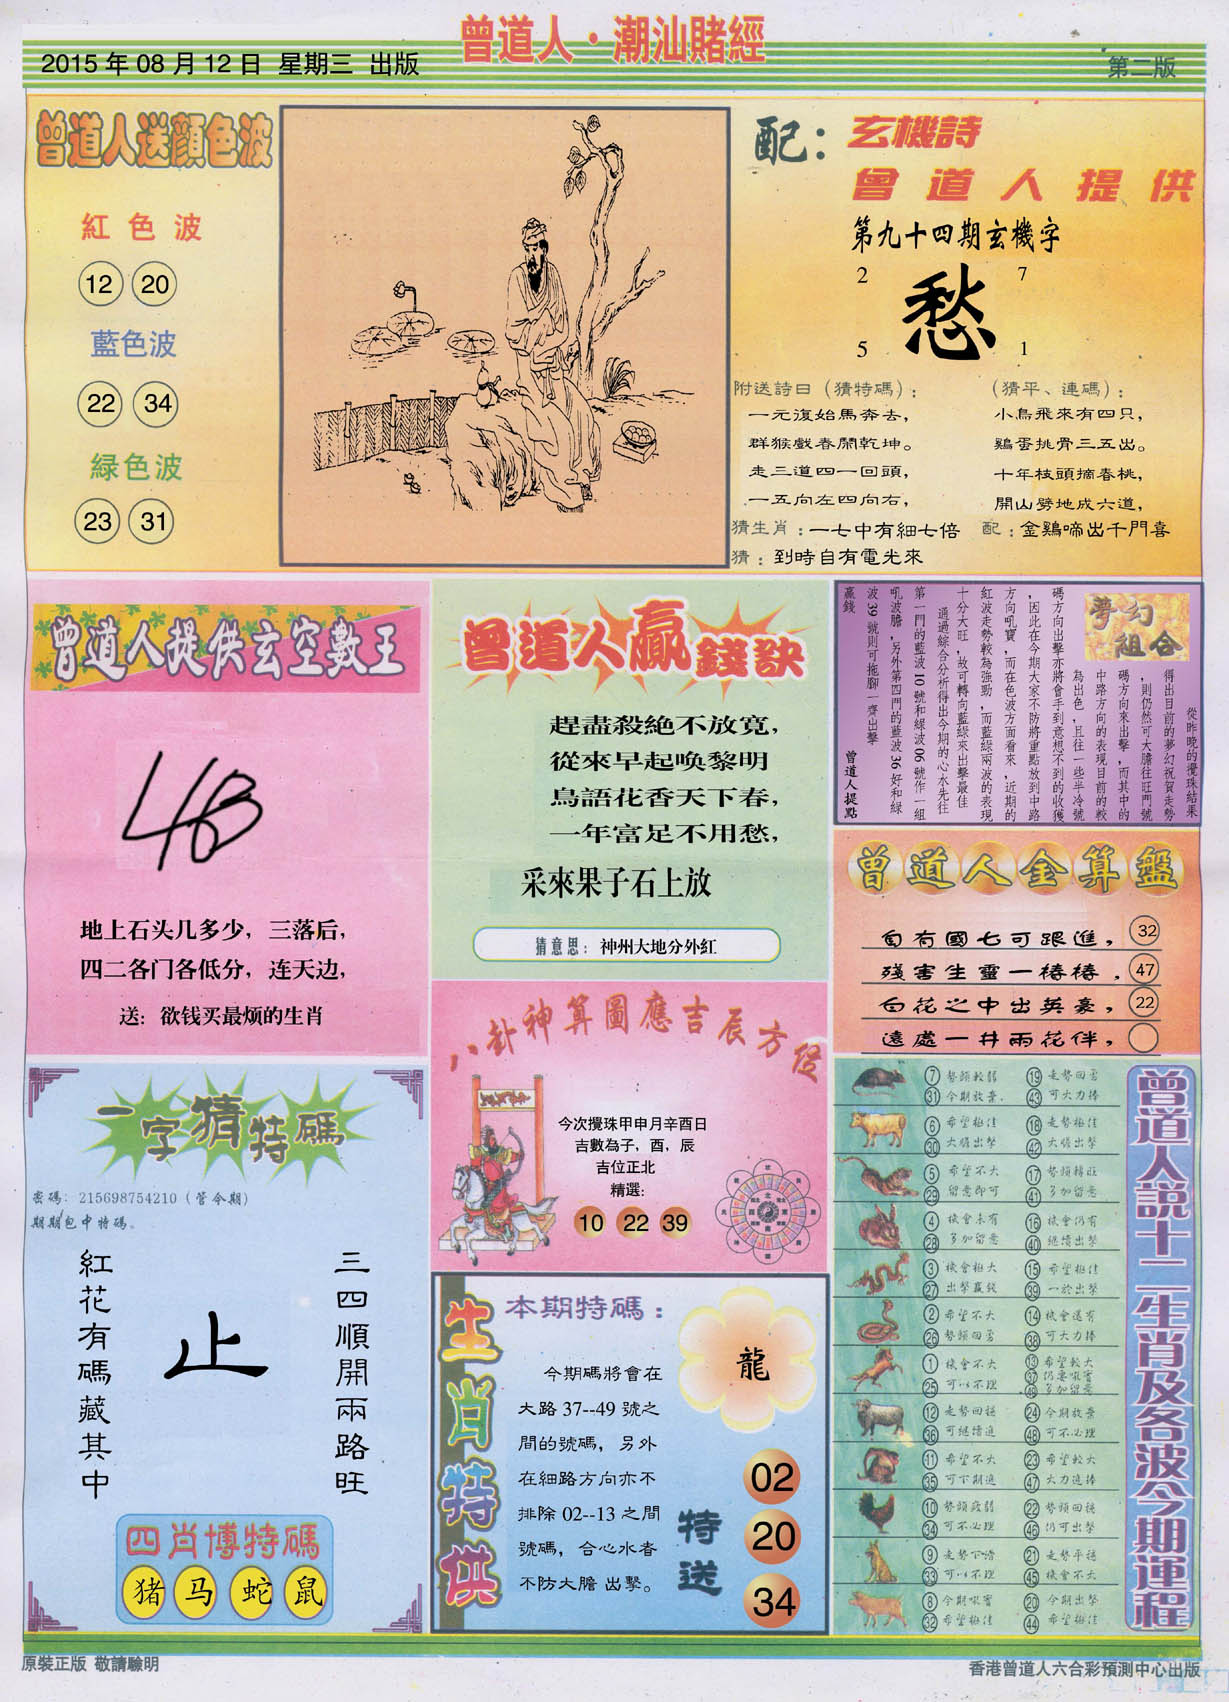 曾道人·潮汕賭經
2015年08月12日 星期三 出版
第二版
曾道人送顔色波
紅色波
12 20
藍色波
22 34
緑色波
23 31
配：玄機詩
曾道人提供
第九十四期玄機字
2 7
愁
5 1
附送詩曰（猜特碼）：
一元復始馬奔去，
群猴戲春鬧乾坤。
走三道四一回頭，
一五向左四向右，
（猜平、連碼）：
小鳥飛來有四只，
鷄蛋挑骨三五出。
十年枝頭摘春桃，
開山劈地成六道，
猜生肖：一七中有細七倍 配：金鷄啼出千門喜
猜：到時自有電光來
曾道人提供玄空數王
地上石头几多少，三落后，
四二各门各低分，连天边，
送：欲钱买最烦的生肖
曾道人贏錢訣
趕盡殺絶不放寬，
從來早起唤黎明
鳥語花香天下春，
一年富足不用愁，
采來果子石上放
猜意思：神州大地分外紅
夢幻組合
從昨晚的攪珠結果
得出目前的夢幻祝賀走勢
，則仍然可大膽往旺門號
碼方向來出擊，而其中的
中路方向的表現目前的較
為出色，且往一些半冷號
碼方向出擊亦將會手到意想不到的收獲
，因此在今期大家不防將重點放到中路
方向吼寶，而在色波方面看來，近期的
紅波走勢較為強勁，而藍緑兩波的表現
十分大旺，故可轉向藍緑來出擊最佳
通過綜合分析得出今期的心水先往
第一門的藍波10號和緑波06號作一組
吼波膽，另外第四門的藍波36好和緑
波39號則可拖腳一齊出擊
贏錢
曾道人提點
曾道人金算盤
自有國七可跟進，32
殘害生靈一樁樁．47
白花之中出英豪，22
遠處一井兩花伴，
八卦神算圖應吉辰方位
今次攪珠甲申月辛酉日
吉數為子，酉，辰
吉位正北
精選：
10 22 39
一字猜特碼
密碼：215698754210（管令期）
期期包中特碼。
三四順開兩路旺
止
紅花有碼藏其中
四肖博特碼
猪 马 蛇 鼠
生肖特供
本期特碼：
龍
今期碼將會在
大路37--49號之
間的號碼，另外
在細路方向亦不
排除02--13之間
號碼，合心水者
不防大膽 出擊。
特送
02
20
34
曾道人説十二生肖及各波今期運程
7 勢頭較弱 19 走勢回勇
31 今期放棄． 43 可大力捧
6 希望極佳 18 走勢極佳
30 大膽出擊 42 大膽出擊
5 希望不大 17 勢頭轉旺
29 留意即可 41 多加留意
4 機會未有 16 機會仍有
28 多加留意 40 繼續出擊
3 機會極大 15 希望極佳
27 出擊贏錢 39 一於出擊
2 希望不大 14 機會還有
26 勢頭回勇 38 可大力捧
1 機會不大 13 希望較大
25 可以不理 37 仍要吸實
49 多加留意
12 走勢回穩 24 今期放棄
36 可繼續追 48 可不必理
11 希望不大 23 希望較大
35 可下期追 47 大力追捧
10 勢頭疲弱 22 勢頭回穩
34 可不必理 46 仍可出擊
9 走勢下滑 21 走勢平穩
33 可以不理 45 機會不大
8 今期吸實 20 今期出擊
32 希望極佳 44 希望極佳
原裝正版 敬請驗明
香港曾道人六合彩預測中心出版